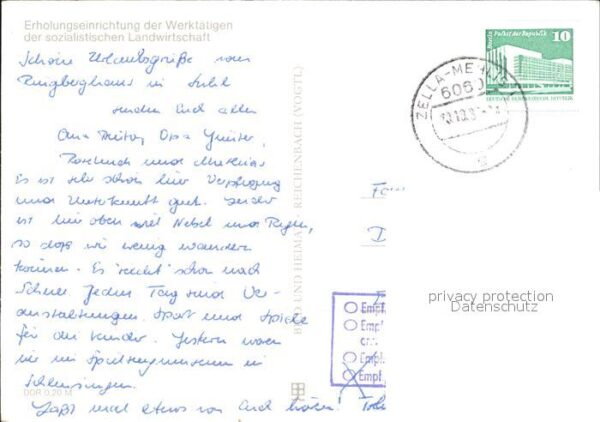 Erholungseinrichtung der Werktätigen
der sozialistischen Landwirtschaft
Schöne Urlaubsgrüße vom
Ringberghaus in Suhl
senden Euch allen
Oma Opa Günter,
und Mathias
Es ist sehr schön hier Verpflegung
und Unterkunft gut. Leider
ist hier oben viel Nebel und Regen,
so daß wir wenig wandern
können. Es "riecht" schon nach
Schnee. Jeden Tag sind Ver-
anstaltungen, Sport und Spiele
für die Kinder. Gestern waren
wir im Spielzeugmuseum in
Schleusingen.
Laßt mal etwas von Euch hören!
DDR 0,20 M
BILD UND HEIMAT REICHENBACH (VOGTL)
Palast der Republik
10
DEUTSCHE DEMOKRATISCHE REPUBLIK
ZELLA-MEHLIS 1
6060
Empf
Empf
Empf
Empf
privacy protection
Datenschutz